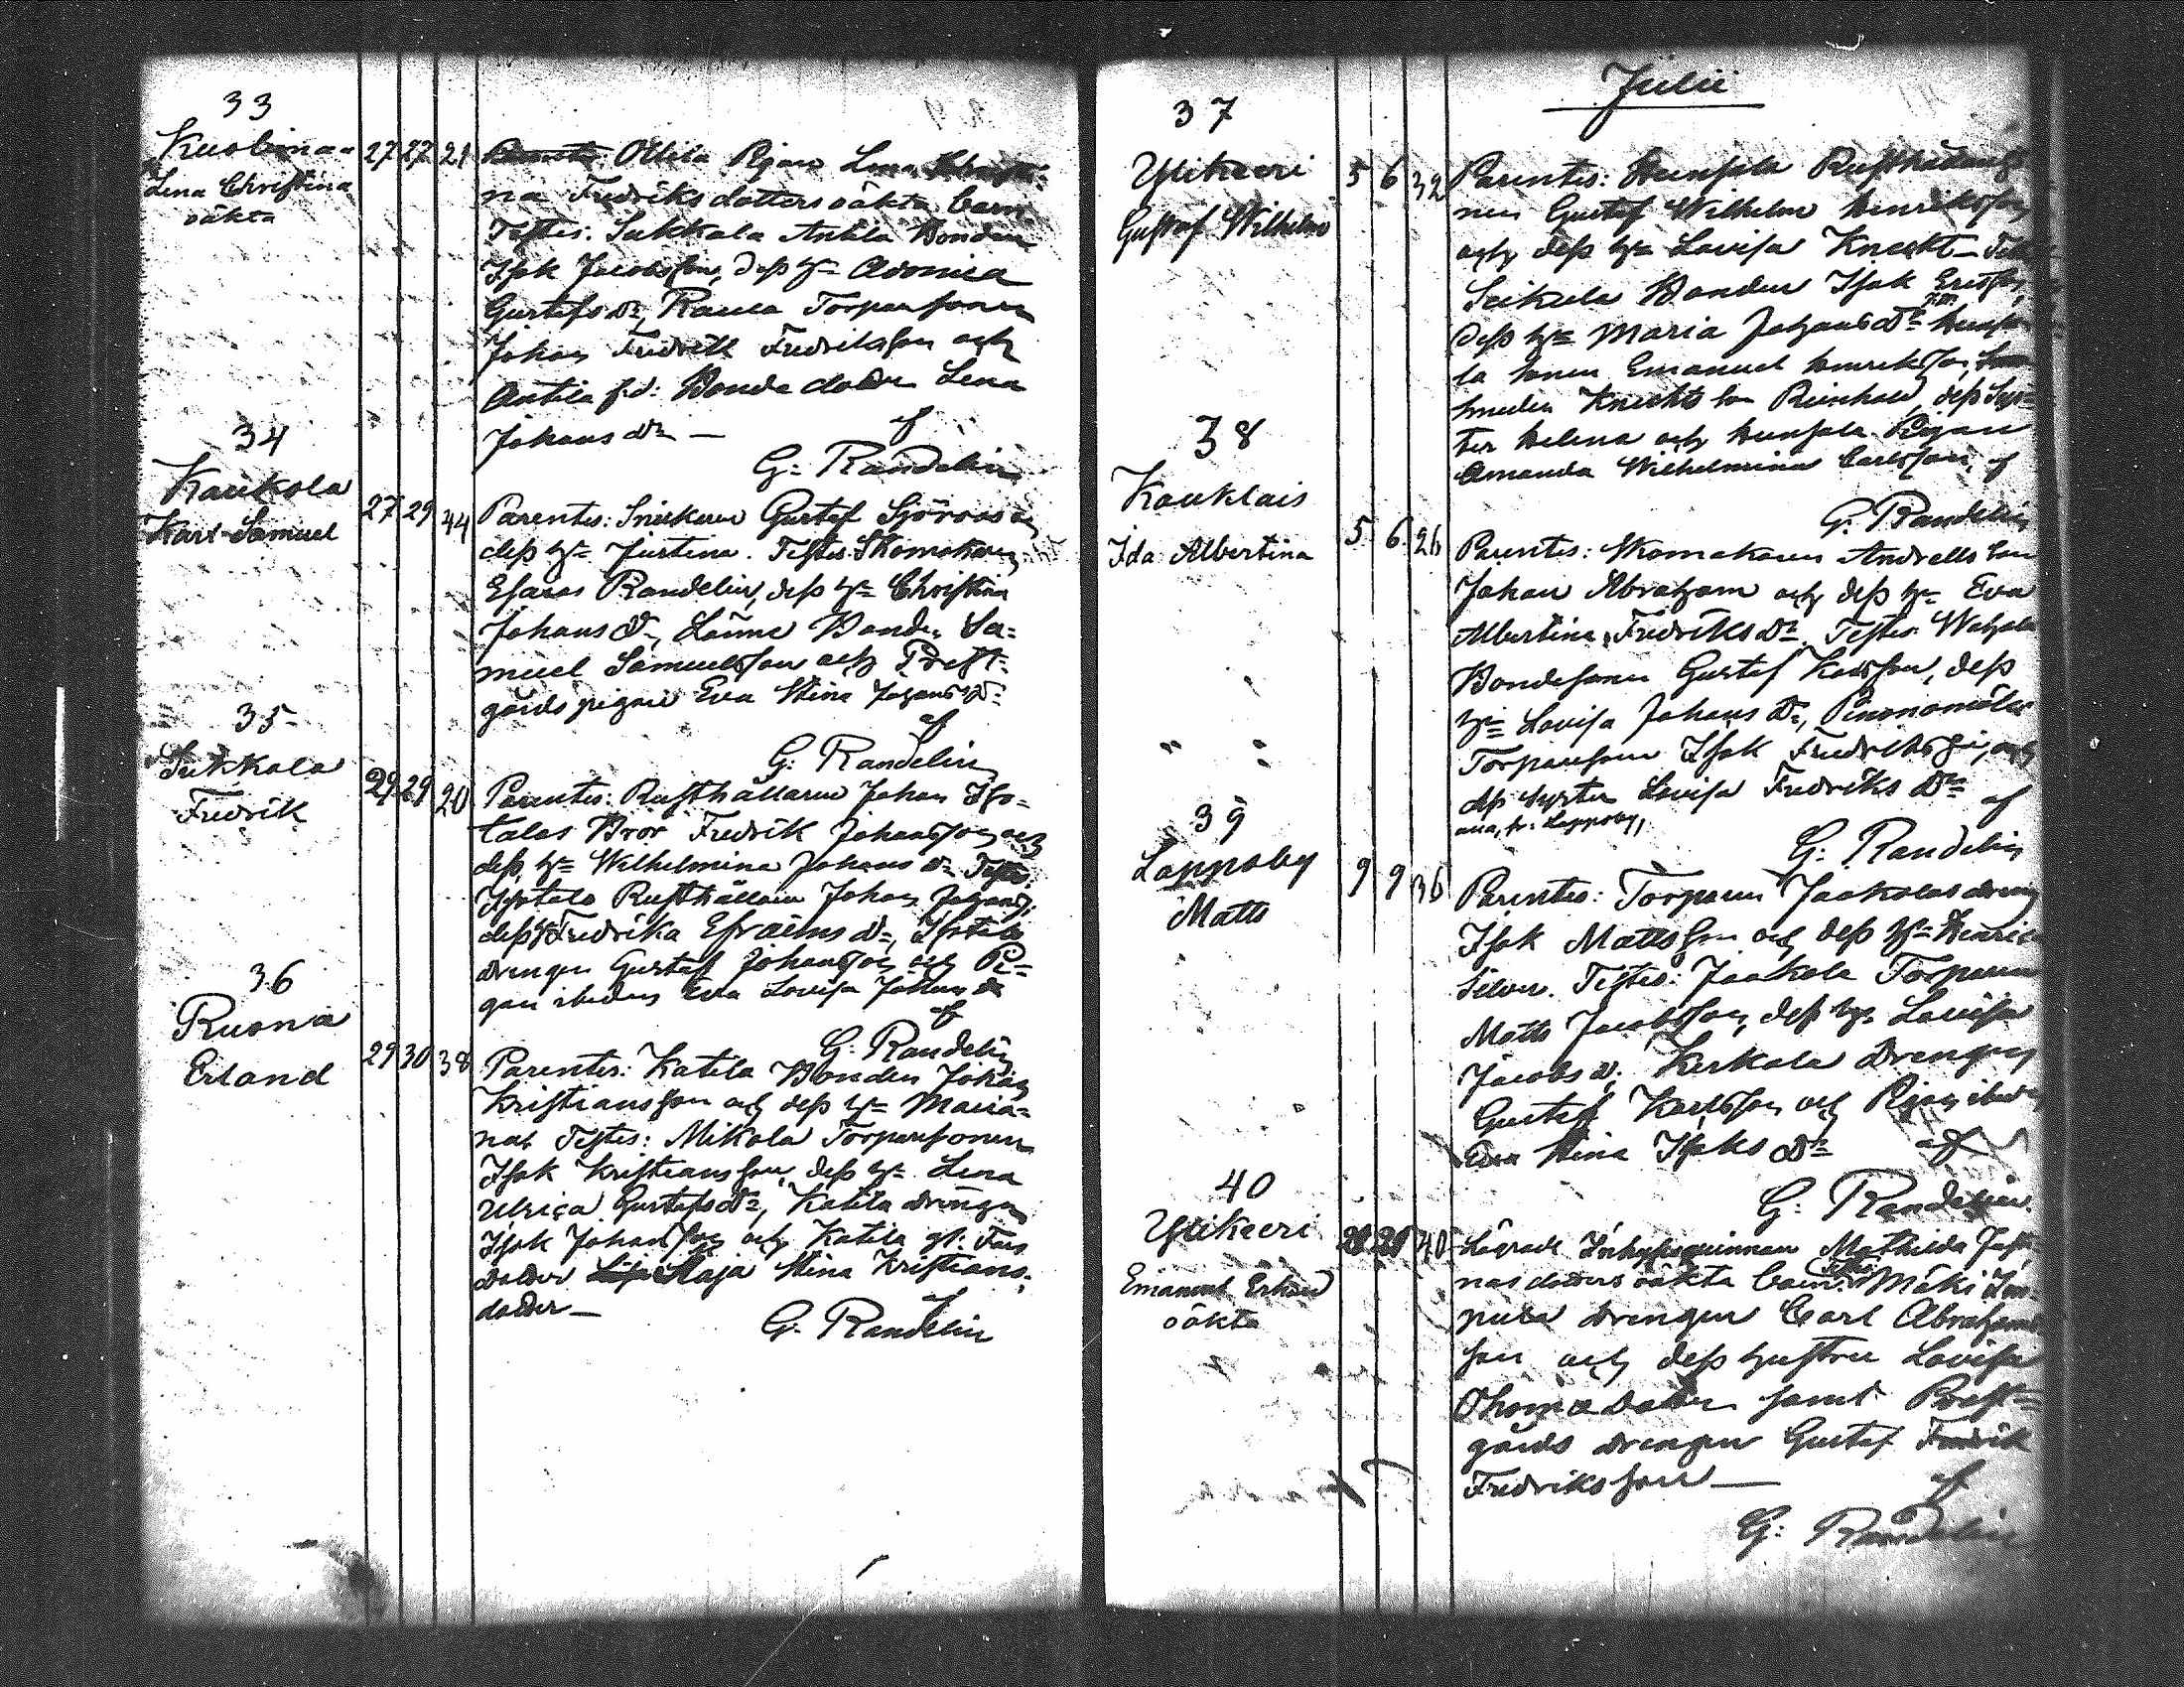 33
Kuolimaa
Lena Christina
oäkta
27 27 21
Ottila Pigan Lena
na Fredriks dotters oäkta barn
Testes: Sukkala Antila Bonden
Isak Jacobsson, dess h:u
Gustafs Dr, Raula Torparsonen
Johan Fredrik Fredriksson och
Antila f.d: Bonde dotter Lena
Johans dr —
af
G: Randelin
34
Kaukola
Karl Samuel
27 29 44
Parentes: Snickaren Gustaf Sjöroos o
dess h:u Justina. Testes: Skomakaren
Esaias Randelin, dess h:u Christina
Johans D:r, Bonde: Sa=
muel Samuelsson och Prest=
gårds pigan Eva Stina Johans D:r
af
G: Randelin
35
Sukkala
Fredrik
29 29 20
Parentes: Rusthållaren Johan Iso=
talos Bror Fredrik Johansson och
dess h:u Wilhelmina Johans dr Testes:
Isotalo Rusthållaren Johan
dess h:u Fredrika Efraims dr, Isotalo
drengen Gustaf Johansson och Pi=
gan ibidem Eva Lovisa Johans dr
af
G: Randelin
36
Ruona
Erland
29 30 38
Parentes: Katila Bonden Johan
Kristiansson och dess h:u Maria=
na. Testes: Mikola Torparsonen
Isak Kristiansson, dess h:u Lena
Ulrica Gustafs dr, Katila drengen
Isak Johansson och Katila
dotter Maja Stina Kristians=
dotter —
af
G. Randelin
Julii
37
Ylikeeri
Gustaf Wilhelm
5 6 32
Parentes: Rusthållaresso
nen Gustaf Wilhelm Henriksson
och dess h:u Lovisa Knecht — Test
Seikula Bonden Isak Ericsson,
dess h:u Maria Johans dr
la sonen Emanuel Henriksson,
Knechts son Reinhold, dess Sys=
ter Helena och Pigan
Amanda Wilhelmina Carlsson, af
G. Randelin
38
Kouklais
Ida Albertina
5 6 26
Parentes: Skomakaren Andrells son
Johan Abraham och dess h:u Eva
Albertina Fredriks dr. Testes:
Bondesonen Gustaf Karlsson, dess
h:u Lovisa Johans dr,
Torparesonen Isak Fredriksson, och
dess Syster Lovisa Fredriks Dr
fr. Lappoby,
af
G: Randelin
39
Lappoby
Matts
9 9 36
Parentes: Torparen Jaakolas dreng
Isak Mattsson och dess h:u
Silver. Testes: Jaakola Torparen
Matts Jacobsson, dess h:u Lovisa
Jacobs d, Kerkola Drengen
Gustaf Karlsson och Pigan ibidem
Eva Stina Isaks Dr
af
G: Randelin
40
Ylikeeri
Emanuel Erland
oäkta
28 28 40
Inhysesqvinnan Mathilda
nas dotters oäkta barn: Mäki
drengen Carl Abrahams
son och dess hustru Lovisa
Thomæ Dotter samt Prest=
gårds drengen Gustaf Fredrik
Fredriksson —
af
G: Randelin